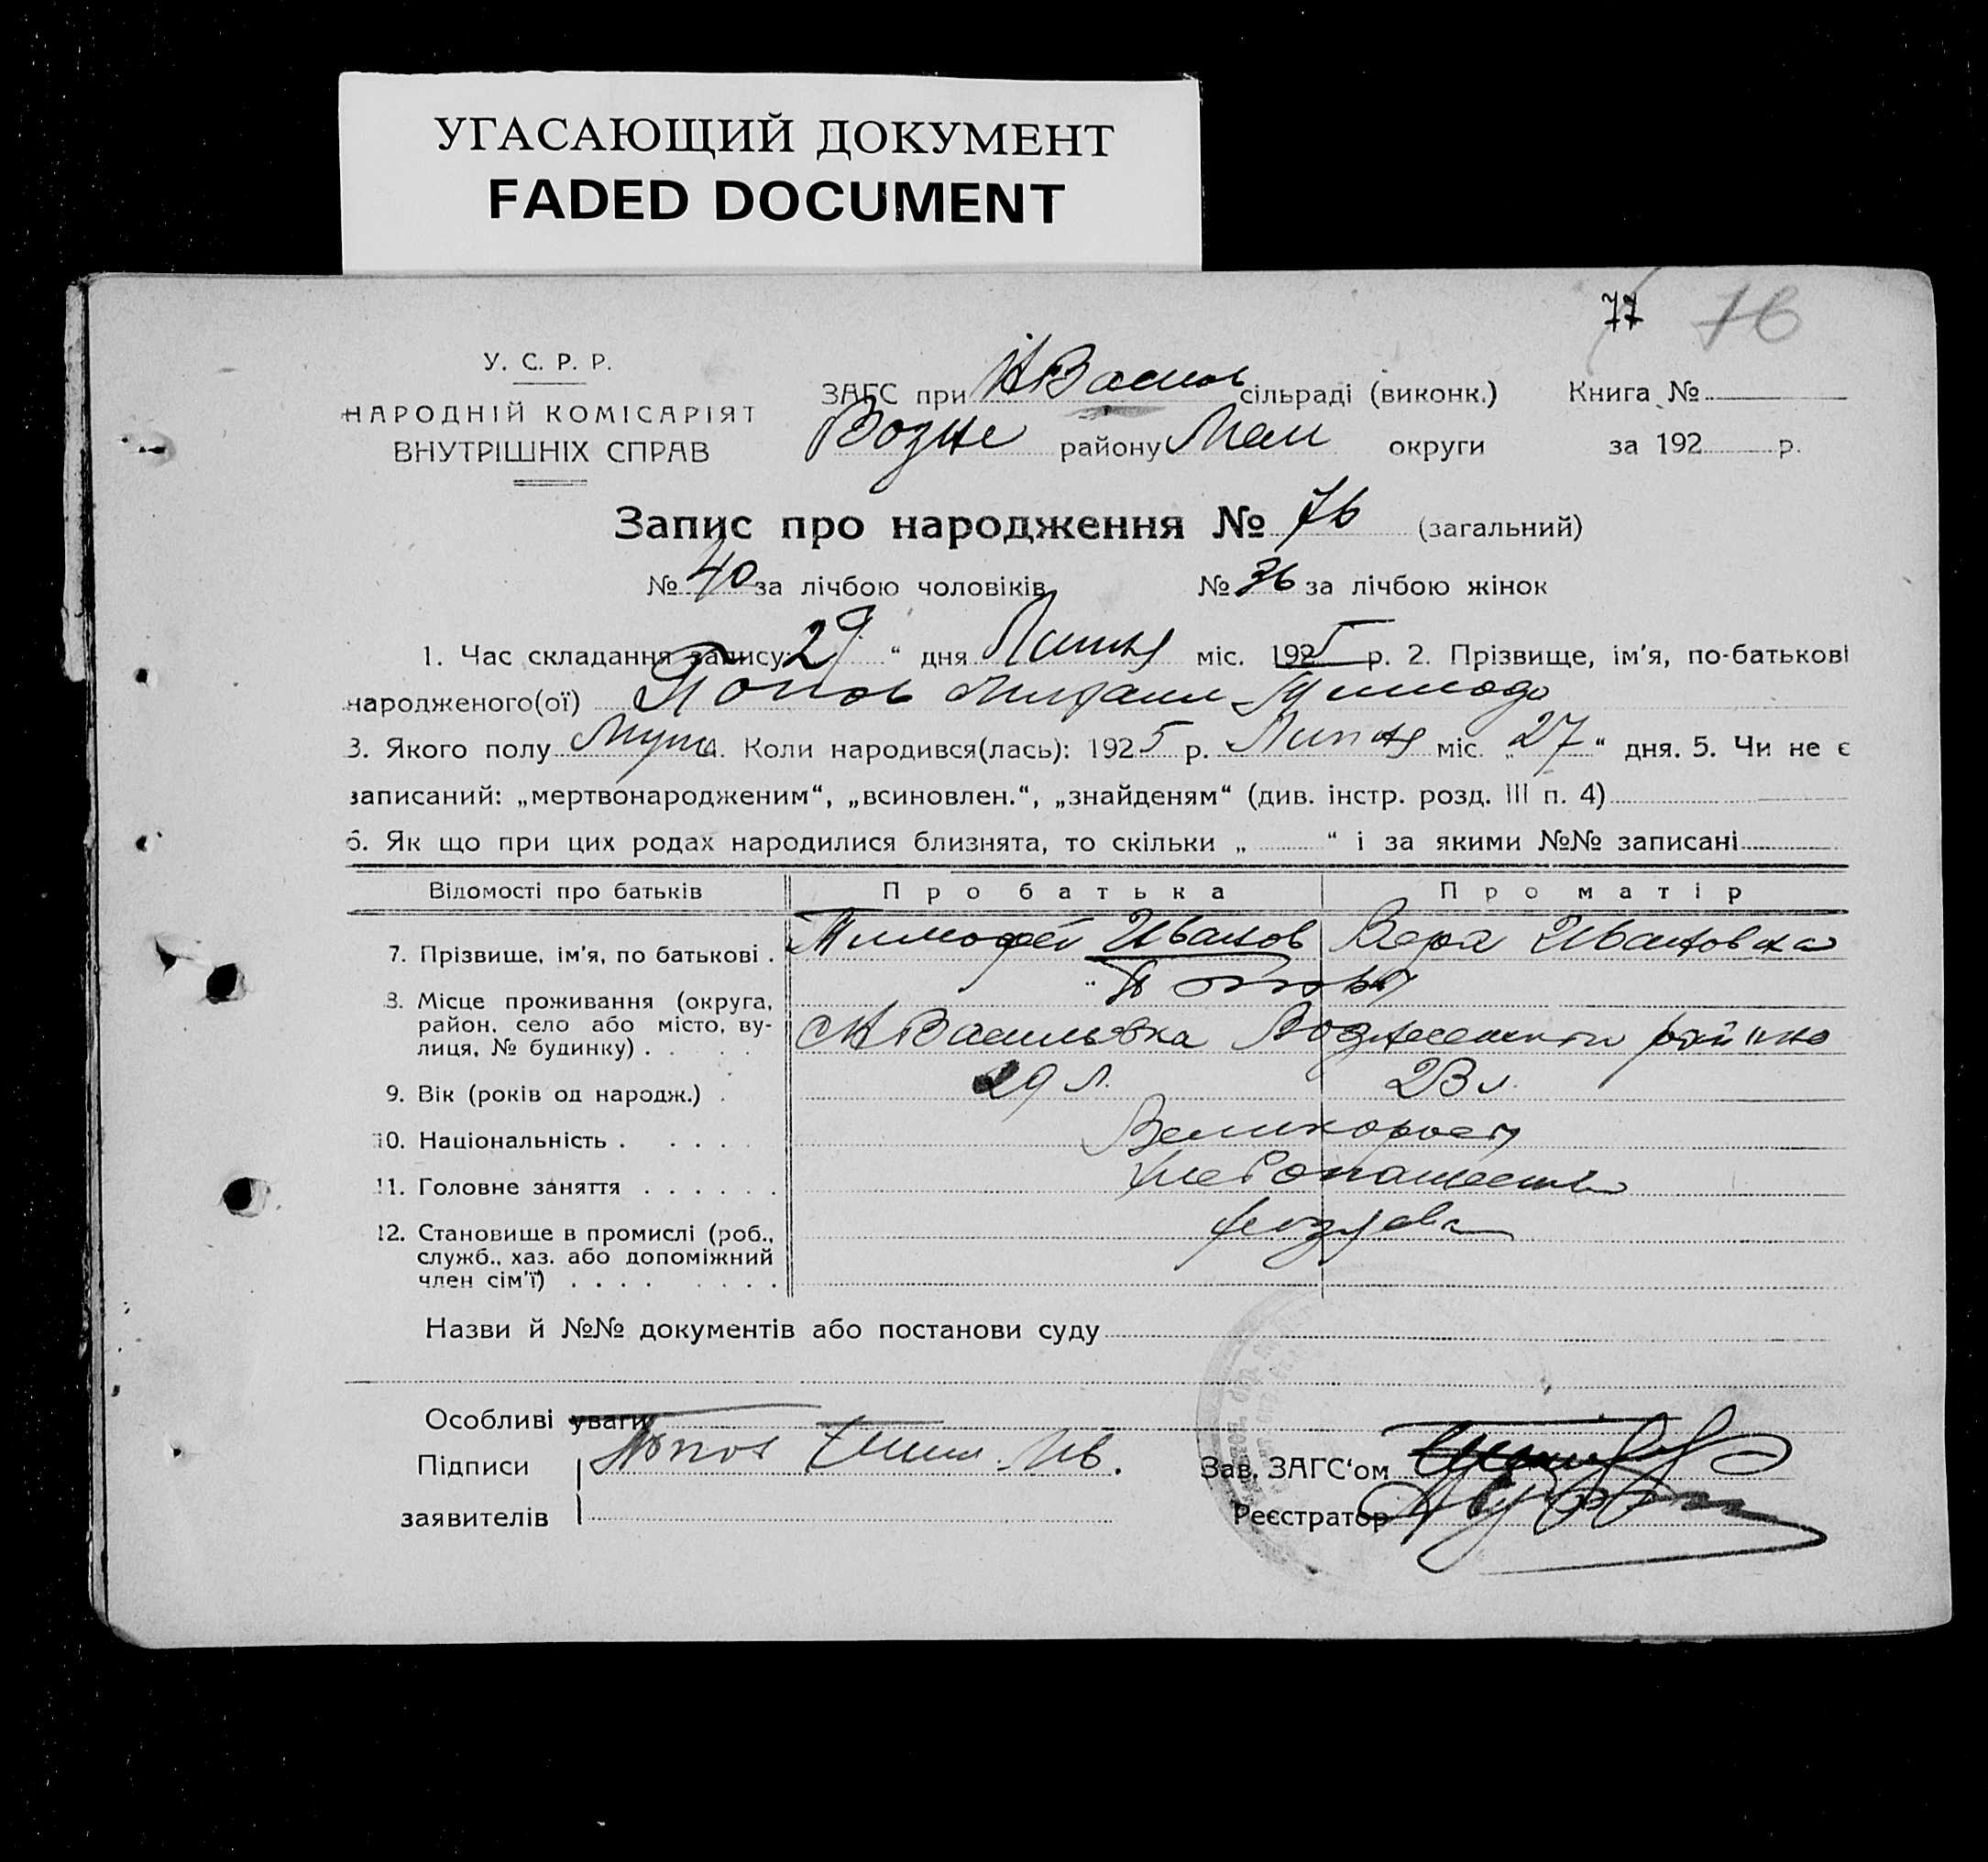 УГАСАЮЩИЙ ДОКУМЕНТ
FADED DOCUMENT
77 76
У. С. Р. Р.
НАРОДНІЙ КОМІСАРІЯТ
ВНУТРІШНІХ СПРАВ
ЗАГС при НВасил сільраді (виконк.) Книга №
Возне району Мел округи за 192 р.
Запис про народження № 76 (загальний)
№ 40 за лічбою чоловіків № 36 за лічбою жінок
1. Час складання запису: 29 " дня Липня міс. 1925 р. 2. Прізвище, ім'я, по-батькові
народженого(ої) Попов Михаил Тимофе
3. Якого полу Муж. Коли народився(лась): 1925 р. Липня міс. „ 27 " дня. 5. Чи не є
записаний: „мертвонародженим", „всиновлен.", „знайденям" (див. інстр. розд. III п. 4)
6. Як що при цих родах народилися близнята, то скільки „ " і за якими №№ записані
Відомості про батьків Про батька Про матір
7. Прізвище, ім'я, по батькові . Тимофей Иванов Вера Ивановна
Поповы
8. Місце проживання (округа,
район, село або місто, ву-
лиця, № будинку) . НВасильевка Вознесенского района
9. Вік (років од народж.) . 29 л. 23 л.
10. Національність . Великороссы
11. Головне заняття . хлебопашество
12. Становище в промислі (роб.,
служб., хаз. або допоміжний
член сім'ї)
Назви й №№ документів або постанови суду
Особливі уваги
Підписи Попов Тим. Ив. Зав. ЗАГС'ом
заявителів Реєстратор